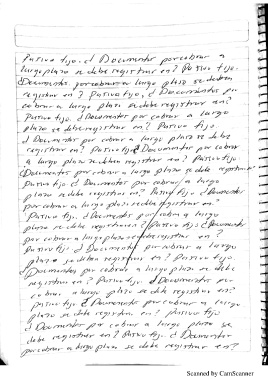 Pasivo fijo. ¿ Documentos por cobrar a
largo plazo se debe registrar en? Pasivo fijo.
¿Documentos por cobrar a largo plazo se deben
registrar en? Pasivo fijo, ¿ Documentos por
cobrar a largo plazo se debe registrar en?
Pasivo fijo. ¿ Documentos por cobrar a largo
plazo se debe registrar en? Pasivo fijo.
¿ Documentos por cobrar a largo plazo se debe
registrar en? Pasivo fijo. ¿ Documentos por cobrar
a largo plazo se deben registrar en? Pasivo fijo.
¿Documentos por cobrar a largo plazo se debe registrar
en? Pasivo fijo. ¿ Documentos por cobrar a largo
plazo se debe registrar en? Pasivo fijo. ¿ Documentos
por cobrar a largo plazo se debe registrar en?
Pasivo fijo. ¿ Documentos por cobrar a largo
plazo se debe registrar en? ¿ Pasivo fijo. ¿ Documentos
por cobrar a largo plazo se debe registrar en?
Pasivo fijo. ¿ Documentos por cobrar a largo
plazo se deben registrar en? Pasivo fijo.
¿ Documentos por cobrar a largo plazo se debe
registrar en? Pasivo fijo. ¿ Documentos por
cobrar a largo plazo se debe registrar en?
Pasivo fijo. ¿ Documentos por cobrar a largo
plazo se debe registrar en? Pasivo fijo
¿ Documentos por cobrar a largo plazo se
debe registrar en? Pasivo fijo. ¿ Documentos
por cobrar a largo plazo se debe registrar en?
Scanned by CamScanner